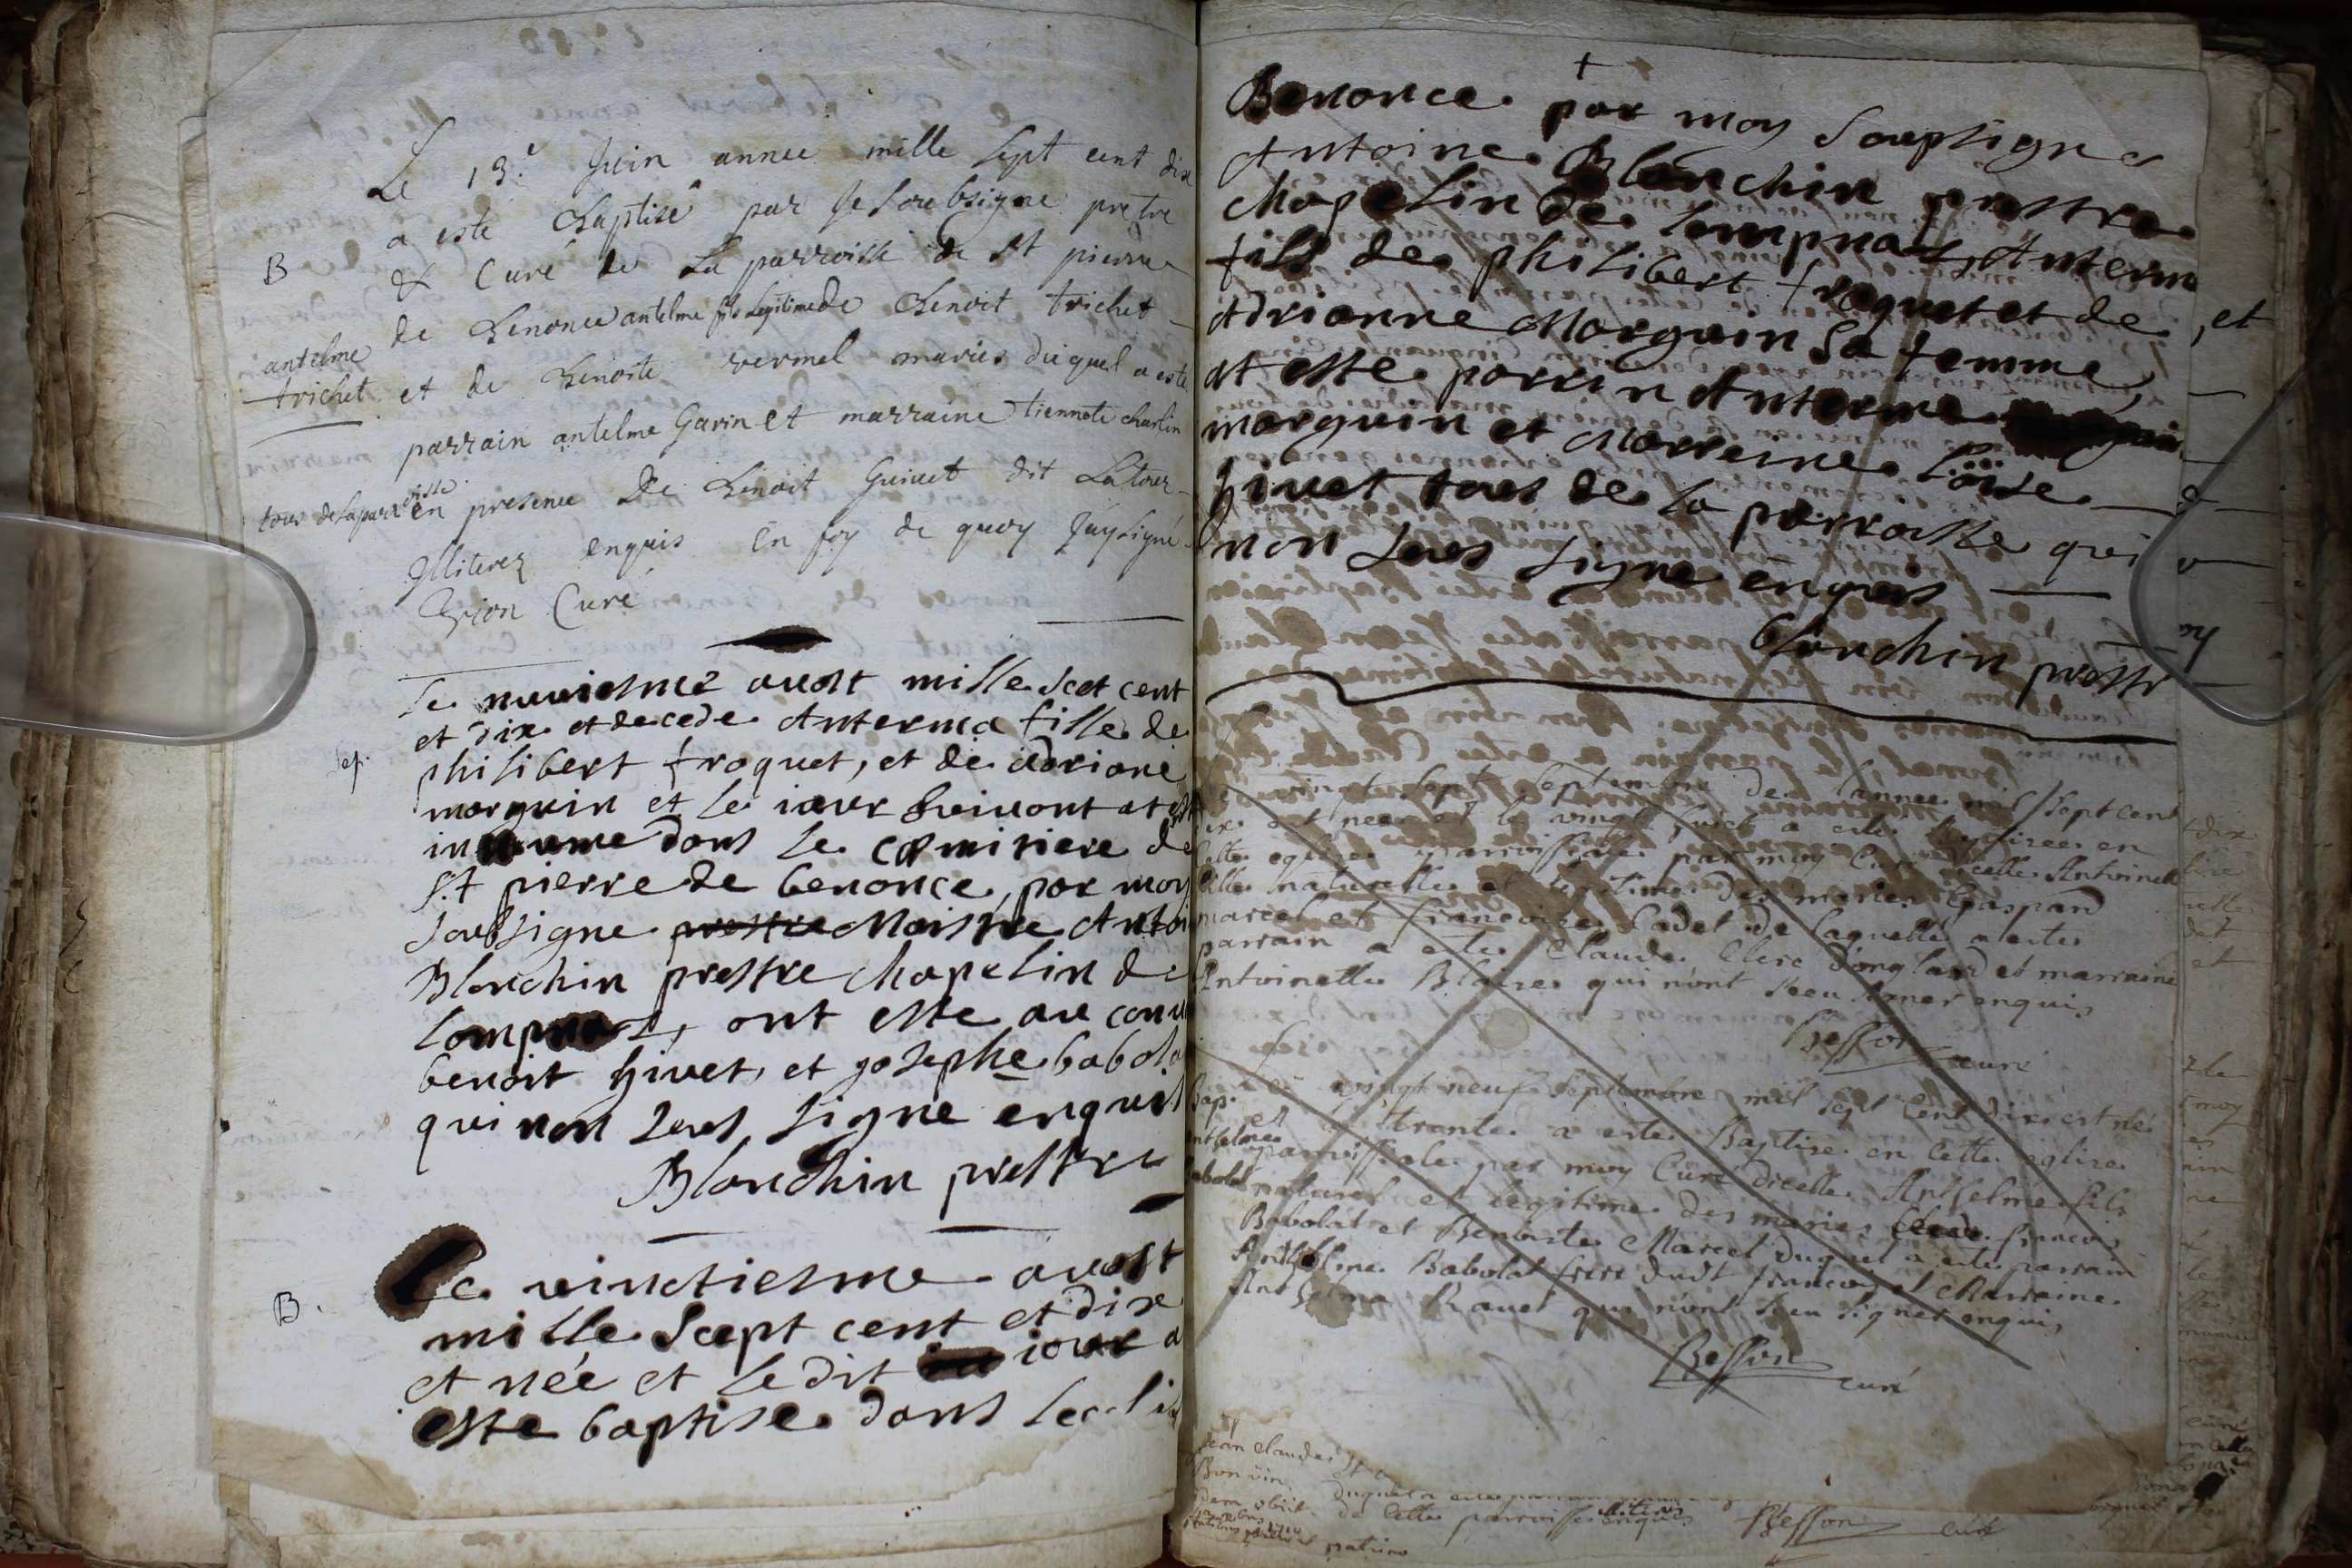 Le 13.e Juin annee mille sept cent dix
a este baptisé par Je soubsigne pretre
B
& Curé de La parroisse de St pierre
de benonce antelme fils legitime de benoit trichet
antelme
trichet
et de benoite vermel mariés duquel a esté
parrain antelme Garin et marraine tiennete charlin
tous de la parroisse
en presence De benoit Guivet dit Latour
Illiterez enquis En foy de quoy J'ay signé
Curé
Le nuviesme avost mille scet cent
et dix et decede Anterma fille de
Sep.
philibert froquet, et de adriane
morguin et le iour suivont at est
inhume dons le cemitiere de
St pierre de benonce, por moy
soubsigne prestre Maistre Antoi
Blonchin prestre chapelin de
Lompnas, ont este au conv
benoit hivet, et josephe babola
qui non seus signe enquis
Blonchin prestre
Le vinctiesme avost
B.
mille scept cent et dix
et née et ledit iour a
este baptise dons leclis
Benonce por moy soupsigne
Antoine Blonchin prestre
chapelin de lompnas, Anterm
fille de philibert froquet et de
Adrianne Morguin sa femme,
at este porrin Anterme
morguin et Morreine Loïse
hivet tous de la porroisse qui
non seus signe enques
blonchin prestr
vingt sept septembre de lannee mil sept cent
dix est nee et le vingt huict a este baptisee en
cette eglise parroissiale par moy Curé dicelle Antoinette
fille naturelle et legitime des maries Gaspard
marcel et francoise Cadet de laquelle a este
parrain a este Claude Clerc d'onglard et marraine
Antoinette Blaise qui n'ont sceu signer enquis
Besson curé
Le vingt neuf septembre mil sept cent dix est né
Bap.
et le trente a este Baptisé en cette eglise
antselme
parroissiale par moy Curé dicelle Antselme fils
babolat
naturel et legitime des maries francois
Babolat et Benoiste Marcel duquel a este parrain
Antselme Babolat frere dudt francois et Marraine
Antselma Ravet qui n'ont sceu signer enquis
Besson
curé
Jean claude
Bon vin
de cette parroisse illiteres enquis Besson curé